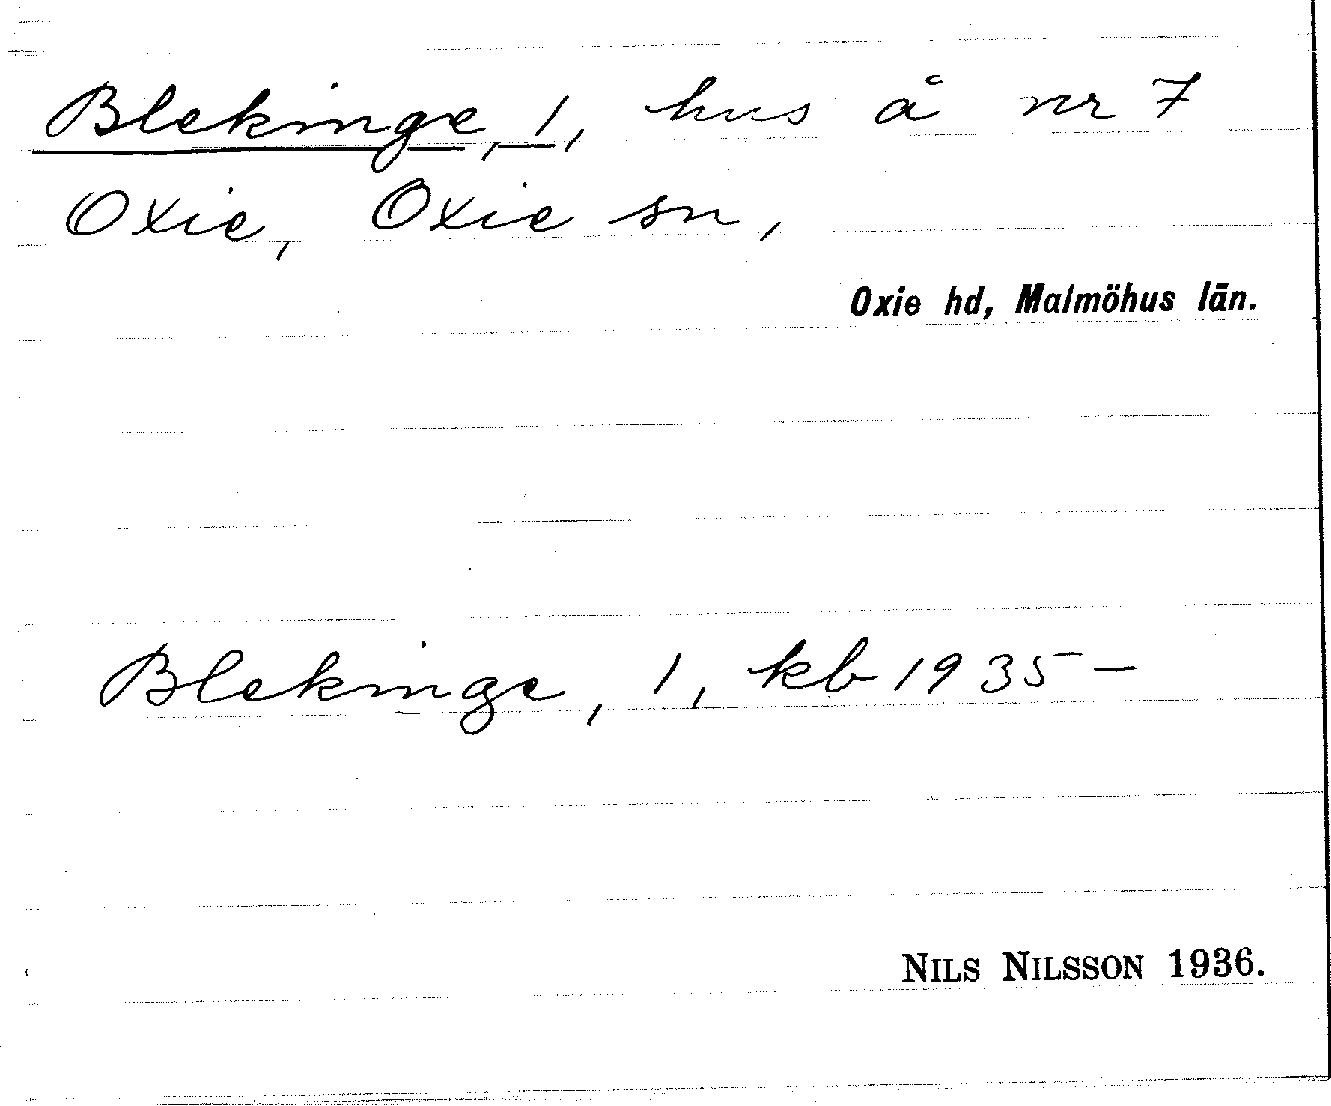 Blekinge, 1, hus å nr 7
Oxie, Oxie sn,
Oxie hd, Malmöhus län.
Blekinge, 1, kb 1935-
NILS NILSSON 1936.